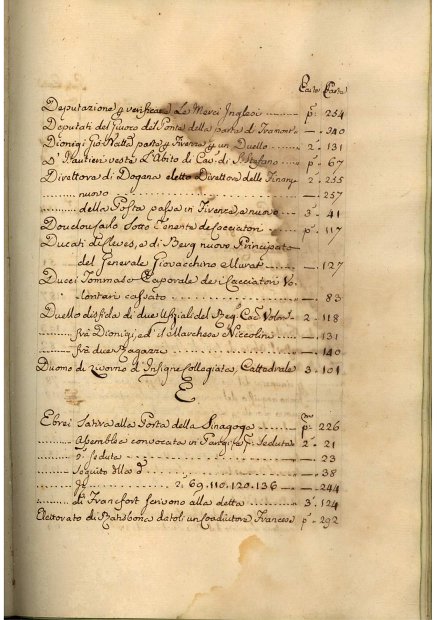 Parte
Deputazione p verificare Le Merci Inglesi ........ p.º 254
Deputati del Giuoco del Ponte della parte di Tramont.ª — 340
Dionigi Gio Batta parte p Firenze p un Duello .. 2.º 131
D' Hautieri vesta L'Abito di Cav. di S. Stefano .... p.º 67
Direttore di Dogana eletto Direttore delle Finanze 2.º 255
nuovo ........ — 257
........ della Posta passa in Firenze, e nuovo ... 3.º 41
Sotto Tenente de Cacciatori ... p.º 117
Ducati di Cleves, e di Berg nuovo Principato
del Generale Giovacchino Murat ........ — 127
Ducci Tommaso Caporale dei Cacciatori Vo
lontari cassato ........ — 83
Duello disfida di due Ufiziali del Reg.º Volon. 2.º 118
........ frà Dionigi, ed il Marchese Niccolini ... — 131
........ frà due Ragazzi ........ — 140
Duomo di Livorno d'Insigne Collegiata, Cattedrale 3.º 101
E
Ebrei Sativa alla Porta della Sinagoga ........ p.º 226
........ Assemblea convocata in Parigi, p.ª Seduta .. 2.º 21
........ 2.ª seduta ........ — 23
........ Seguito della d.ª ........ — 38
........ 2.º 69, 110, 120, 136 ........ — 244
........ di Francfort scrivono alla detta ........ 3.º 124
Elettorato di Ratisbona datoli un Coadiutore Francese p.º 292